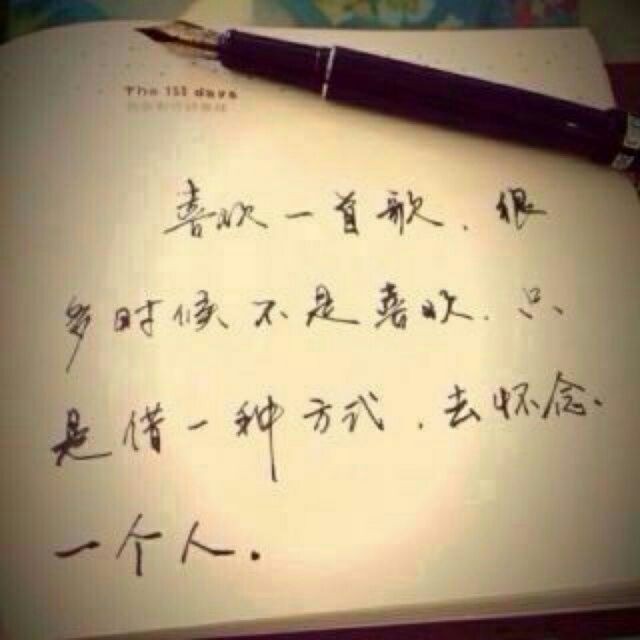 The 153 days
喜欢一首歌，很
多时候不是喜欢，只
是借一种方式，去怀念
一个人.